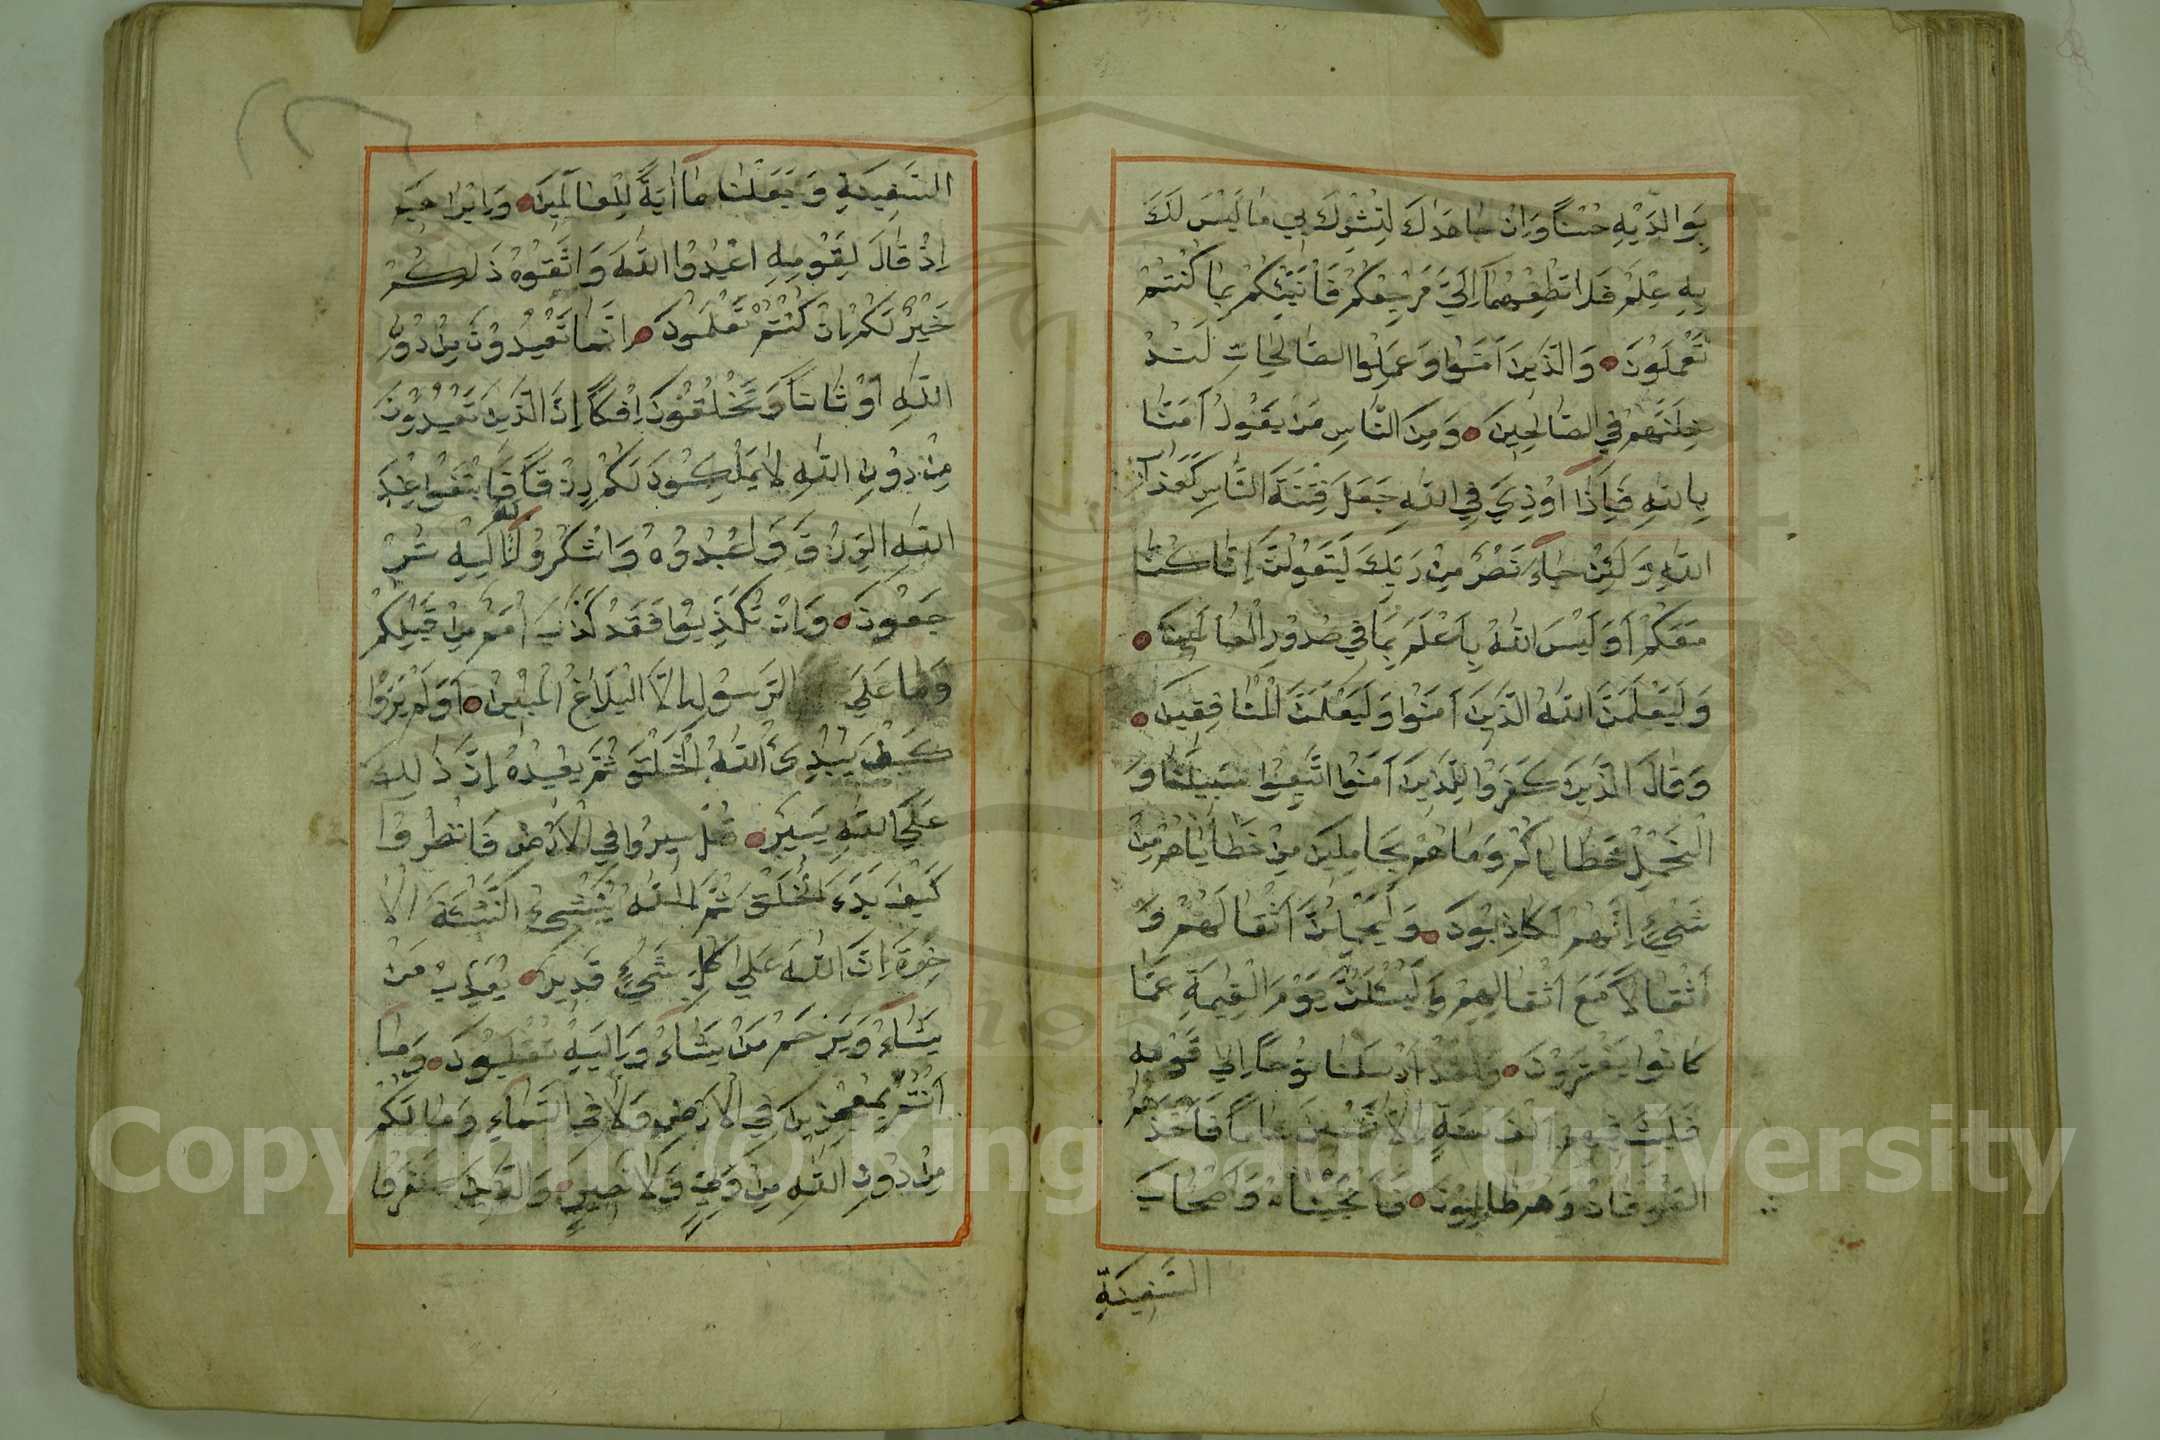 بِوَالِدَيْهِ حُسْنًا وَاِنْ جَاهَدَاكَ لِتُشْرِكَ بِي مَا لَيْسَ لَكَ
بِهِ عِلْمٌ فَلَا تُطِعْهُمَا اِلَيَّ مَرْجِعُكُمْ فَاُنَبِّئُكُمْ بِمَا كُنْتُمْ
تَعْمَلُونَ وَالَّذِينَ اٰمَنُوا وَعَمِلُوا الصَّالِحَاتِ لَنُدْ
خِلَنَّهُمْ فِي الصَّالِحِينَ وَمِنَ النَّاسِ مَنْ يَقُولُ اٰمَنَّا
بِاللّٰهِ فَاِذَا اُوذِيَ فِي اللّٰهِ جَعَلَ فِتْنَةَ النَّاسِ كَعَذَابِ
اللّٰهِ وَلَئِنْ جَاءَ نَصْرٌ مِنْ رَبِّكَ لَيَقُولُنَّ اِنَّا كُنَّا
مَعَكُمْ اَوَلَيْسَ اللّٰهُ بِاَعْلَمَ بِمَا فِي صُدُورِ الْعَالَمِينَ
وَلَيَعْلَمَنَّ اللّٰهُ الَّذِينَ اٰمَنُوا وَلَيَعْلَمَنَّ الْمُنَافِقِينَ
وَقَالَ الَّذِينَ كَفَرُوا لِلَّذِينَ اٰمَنُوا اتَّبِعُوا سَبِيلَنَا وَ
الْنَحْمِلْ خَطَايَاكُمْ وَمَا هُمْ بِحَامِلِينَ مِنْ خَطَايَاهُمْ مِنْ
شَيْءٍ اِنَّهُمْ لَكَاذِبُونَ وَلَيَحْمِلُنَّ اَثْقَالَهُمْ وَ
اَثْقَالًا مَعَ اَثْقَالِهِمْ وَلَيُسْئَلُنَّ يَوْمَ الْقِيٰمَةِ عَمَّا
كَانُوا يَفْتَرُونَ وَلَقَدْ اَرْسَلْنَا نُوحًا اِلٰي قَوْمِهِ
فَلَبِثَ فِيهِمْ اَلْفَ سَنَةٍ اِلَّا خَمْسِينَ عَامًا فَاَخَذَهُمُ
الطُّوفَانُ وَهُمْ ظَالِمُونَ فَاَنْجَيْنَاهُ وَاَصْحَابَ
السَّفِينَةِ
السَّفِينَةِ وَجَعَلْنَاهَا اٰيَةً لِلْعَالَمِينَ وَاِبْرَاهِيمَ
اِذْ قَالَ لِقَوْمِهِ اعْبُدُوا اللّٰهَ وَاتَّقُوهُ ذَلِكُمْ
خَيْرٌ لَكُمْ اِنْ كُنْتُمْ تَعْلَمُونَ اِنَّمَا تَعْبُدُونَ مِنْ دُونِ
اللّٰهِ اَوْثَانًا وَتَخْلُقُونَ اِفْكًا اِنَّ الَّذِينَ تَعْبُدُونَ
مِنْ دُونِ اللّٰهِ لَا يَمْلِكُونَ لَكُمْ رِزْقًا فَابْتَغُوا عِنْدَ
اللّٰهِ الرِّزْقَ وَاعْبُدُوهُ وَاشْكُرُوا لَهُ اِلَيْهِ تُرْ
جَعُونَ وَاِنْ تُكَذِّبُوا فَقَدْ كَذَّبَ اُمَمٌ مِنْ قَبْلِكُمْ
وَمَا عَلَي الرَّسُولِ اِلَّا الْبَلَاغُ الْمُبِينُ اَوَلَمْ يَرَوْا
كَيْفَ يُبْدِئُ اللّٰهُ الْخَلْقَ ثُمَّ يُعِيدُهُ اِنَّ ذٰلِكَ
عَلَي اللّٰهِ يَسِيرٌ قُلْ سِيرُوا فِي الْاَرْضِ فَانْظُرُوا
كَيْفَ بَدَءَ الْخَلْقَ ثُمَّ اللّٰهُ يُنْشِئُ النَّشْئَةَ الْاٰ
خِرَةَ اِنَّ اللّٰهَ عَلٰي كُلِّ شَيْءٍ قَدِيرٌ يُعَذِّبُ مَنْ
يَشَاءُ وَيَرْحَمُ مَنْ يَشَاءُ وَاِلَيْهِ تُقْلَبُونَ وَمَا
اَنْتُمْ بِمُعْجِزِينَ فِي الْاَرْضِ وَلَا فِي السَّمَاءِ وَمَا لَكُمْ
مِنْ دُونِ اللّٰهِ مِنْ وَلِيٍّ وَلَا نَصِيرٍ وَالَّذِينَ كَفَرُوا
Copyright © King Saud University